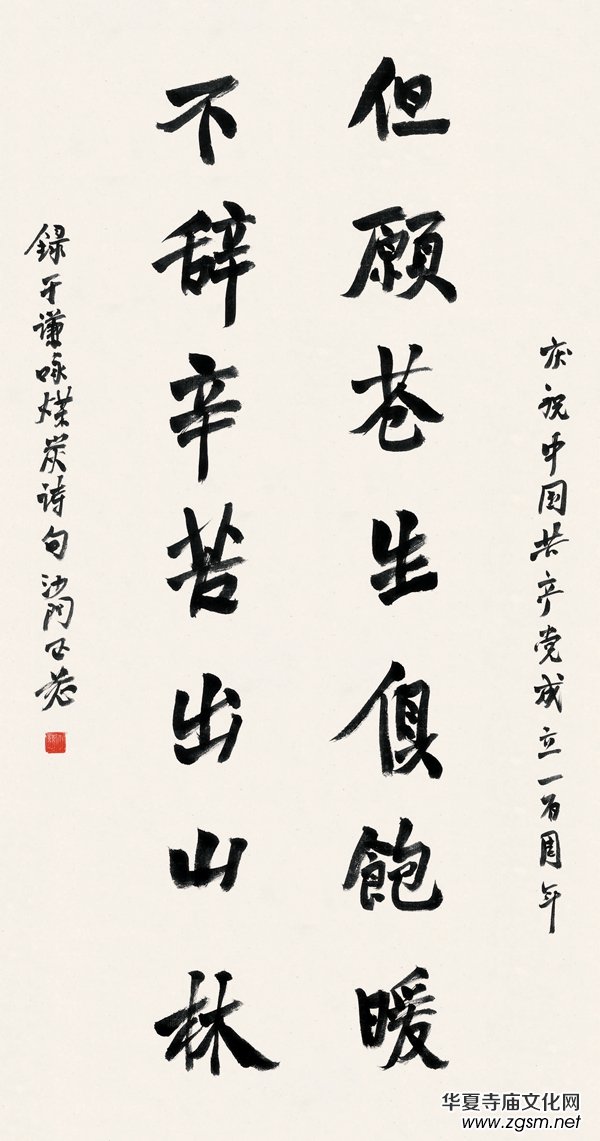 庆祝中国共产党成立一百周年
但願苍生俱飽暖
不辞辛苦出山林
錄于谦咏煤炭诗句 沙門
华夏寺庙文化网
www.zgsm.net